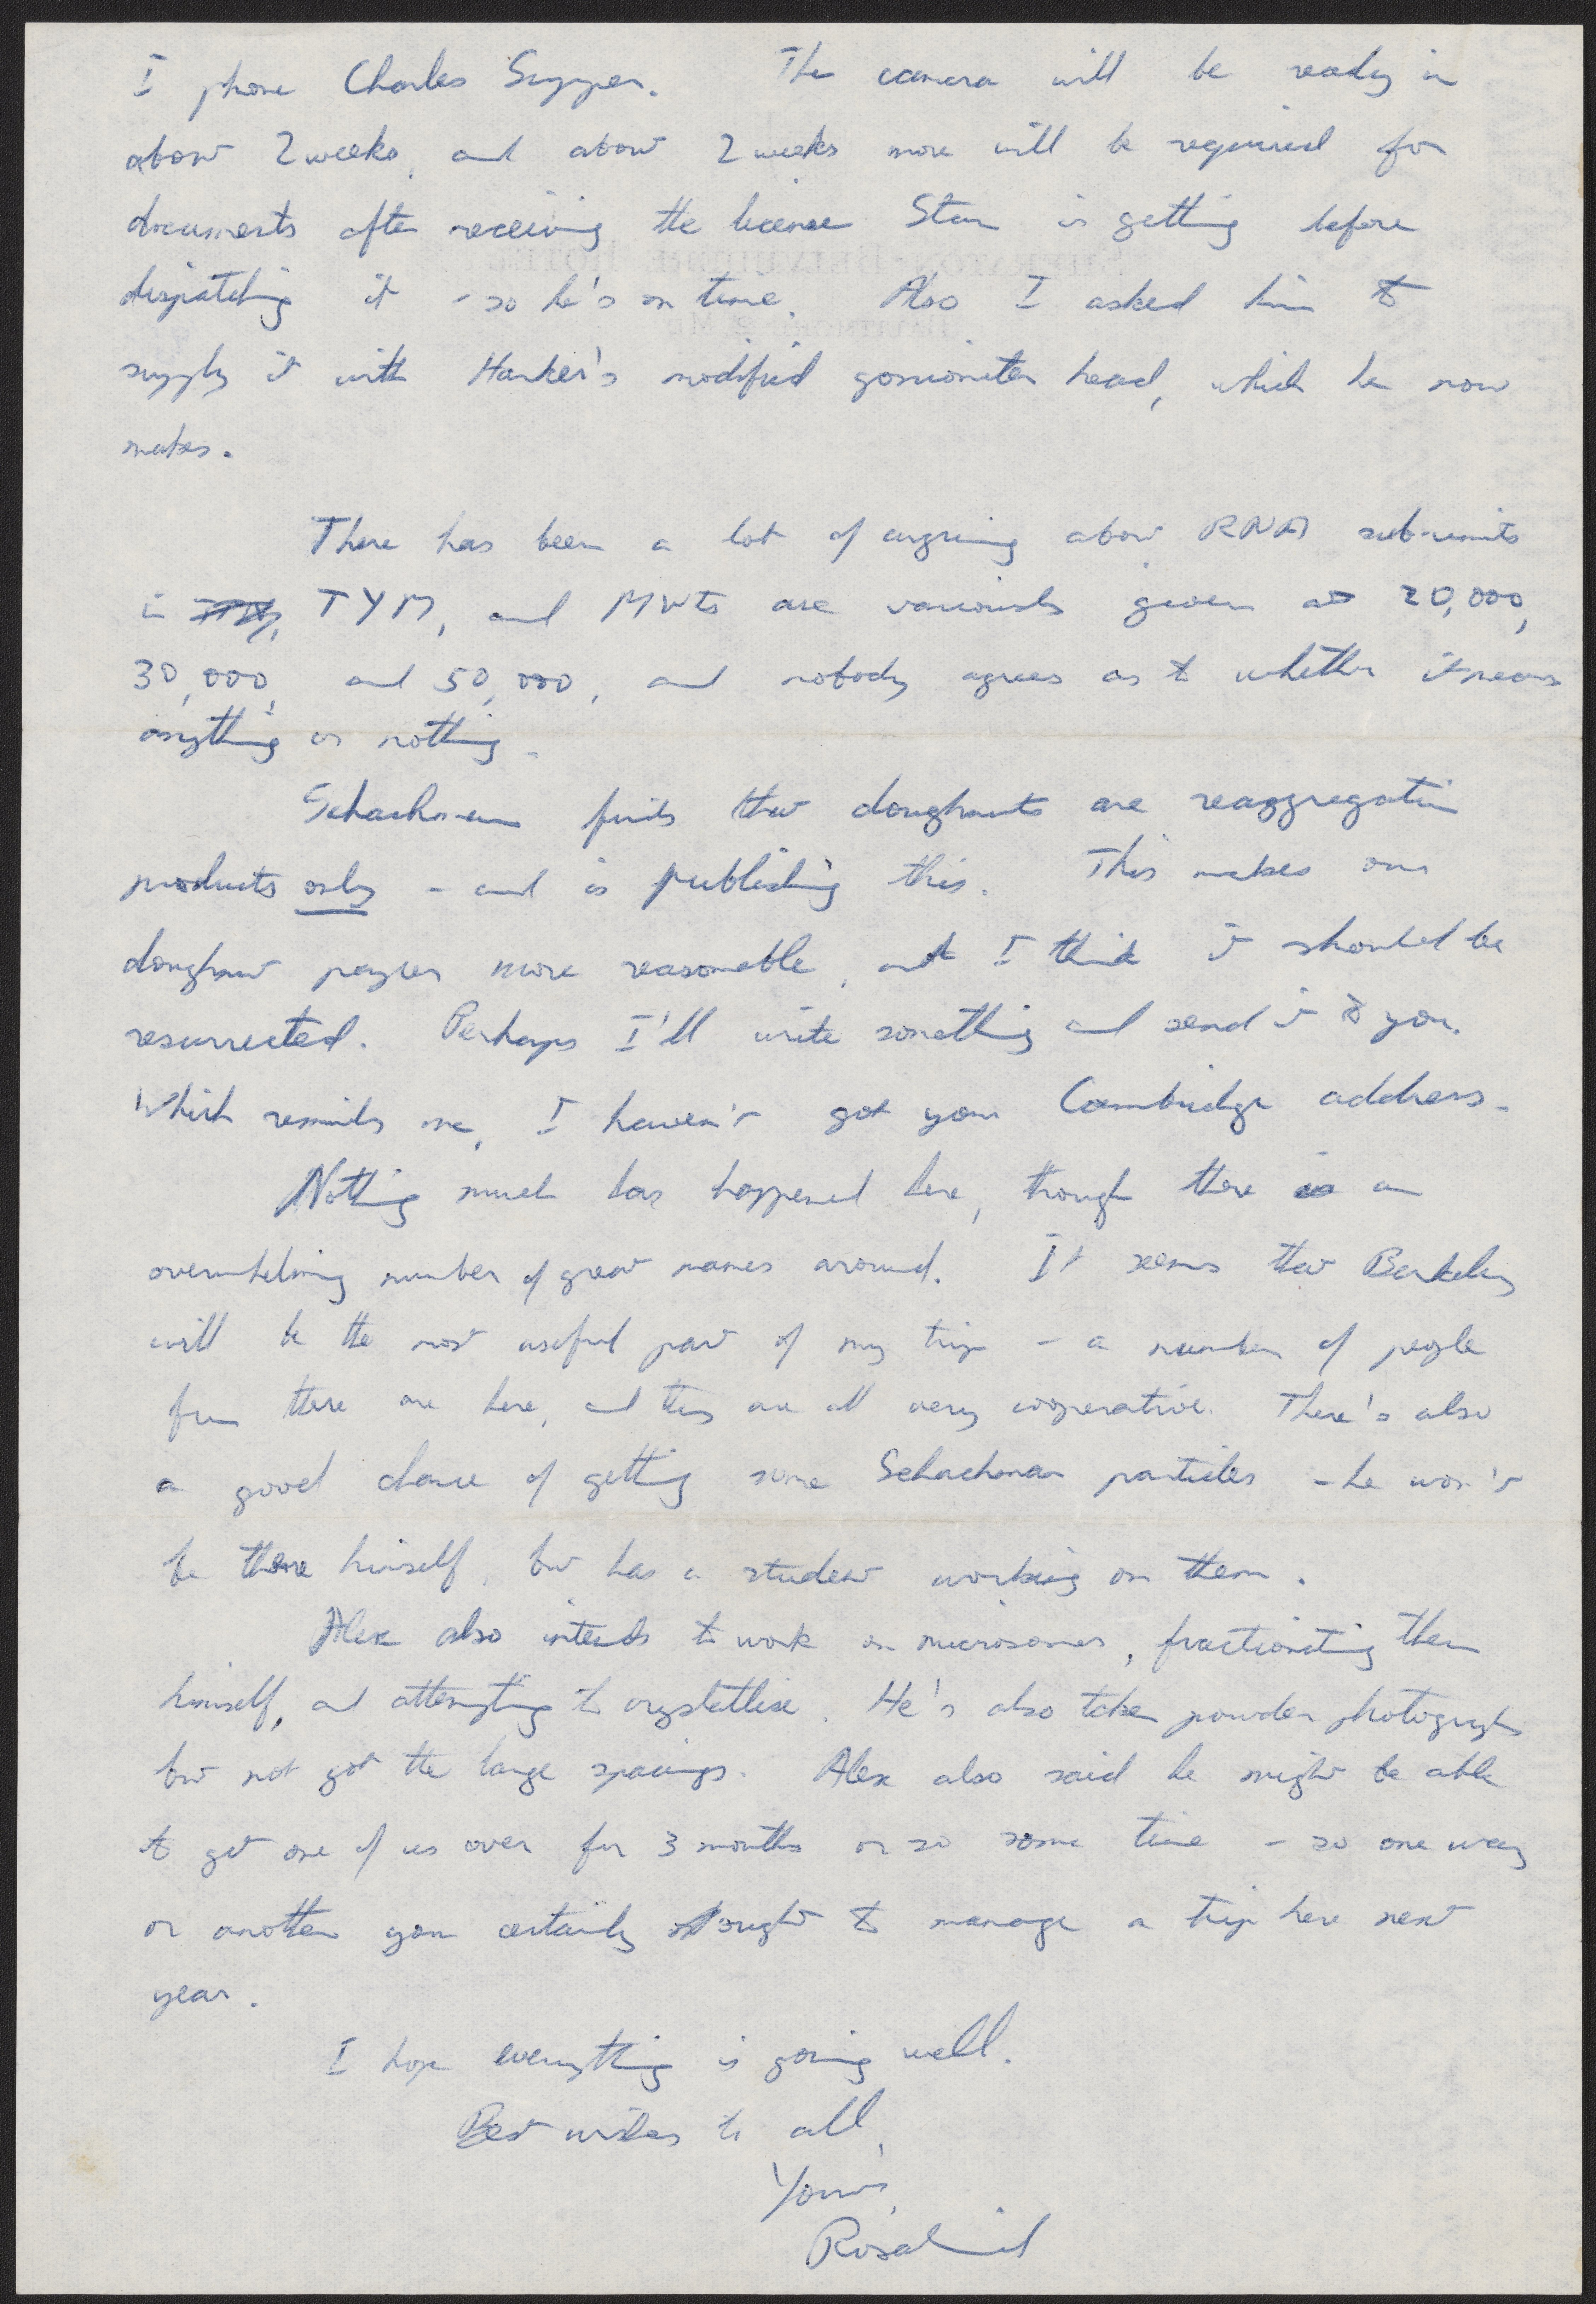 I phone Charles Supper. The camera will be ready in
about 2 weeks, and about 2 weeks more will be required for
documents after receiving the license Stan is getting before
dispatching it - so he's on time. Also I asked him to
supply it with Harker's modified goniometer head, which he now
makes.
There has been a lot of arguing about RNA sub-units
in TYM, and MWts are variously given as 20,000,
30,000, and 50,000, and nobody agrees as to whether it means
anything or nothing.
Schachman finds that doughnuts are reaggregation
products only - and is publishing this. This makes our
doughnut paper more reasonable, and I think it should be
resurrected. Perhaps I'll write something and send it to you.
Which reminds me, I haven't got your Cambridge address.
Nothing much has happened here, though there is an
overwhelming number of great names around. It seems that Berkeley
will be the most useful part of my trip - a number of people
from there are here, and they are all very cooperative. There's also
a good chance of getting some Schachman particles - he won't
be there himself, but has a student working on them.
Alex also intends to work on microsomes, fractionating them
himself, and attempting to crystallise. He's also taken powder photographs
but not got the large spacings. Alex also said he might be able
to get one of us over for 3 months or so some time - so one way
or another you certainly ought to manage a trip here next
year.
I hope everything is going well.
Best wishes to all,
Yours,
Rosalind